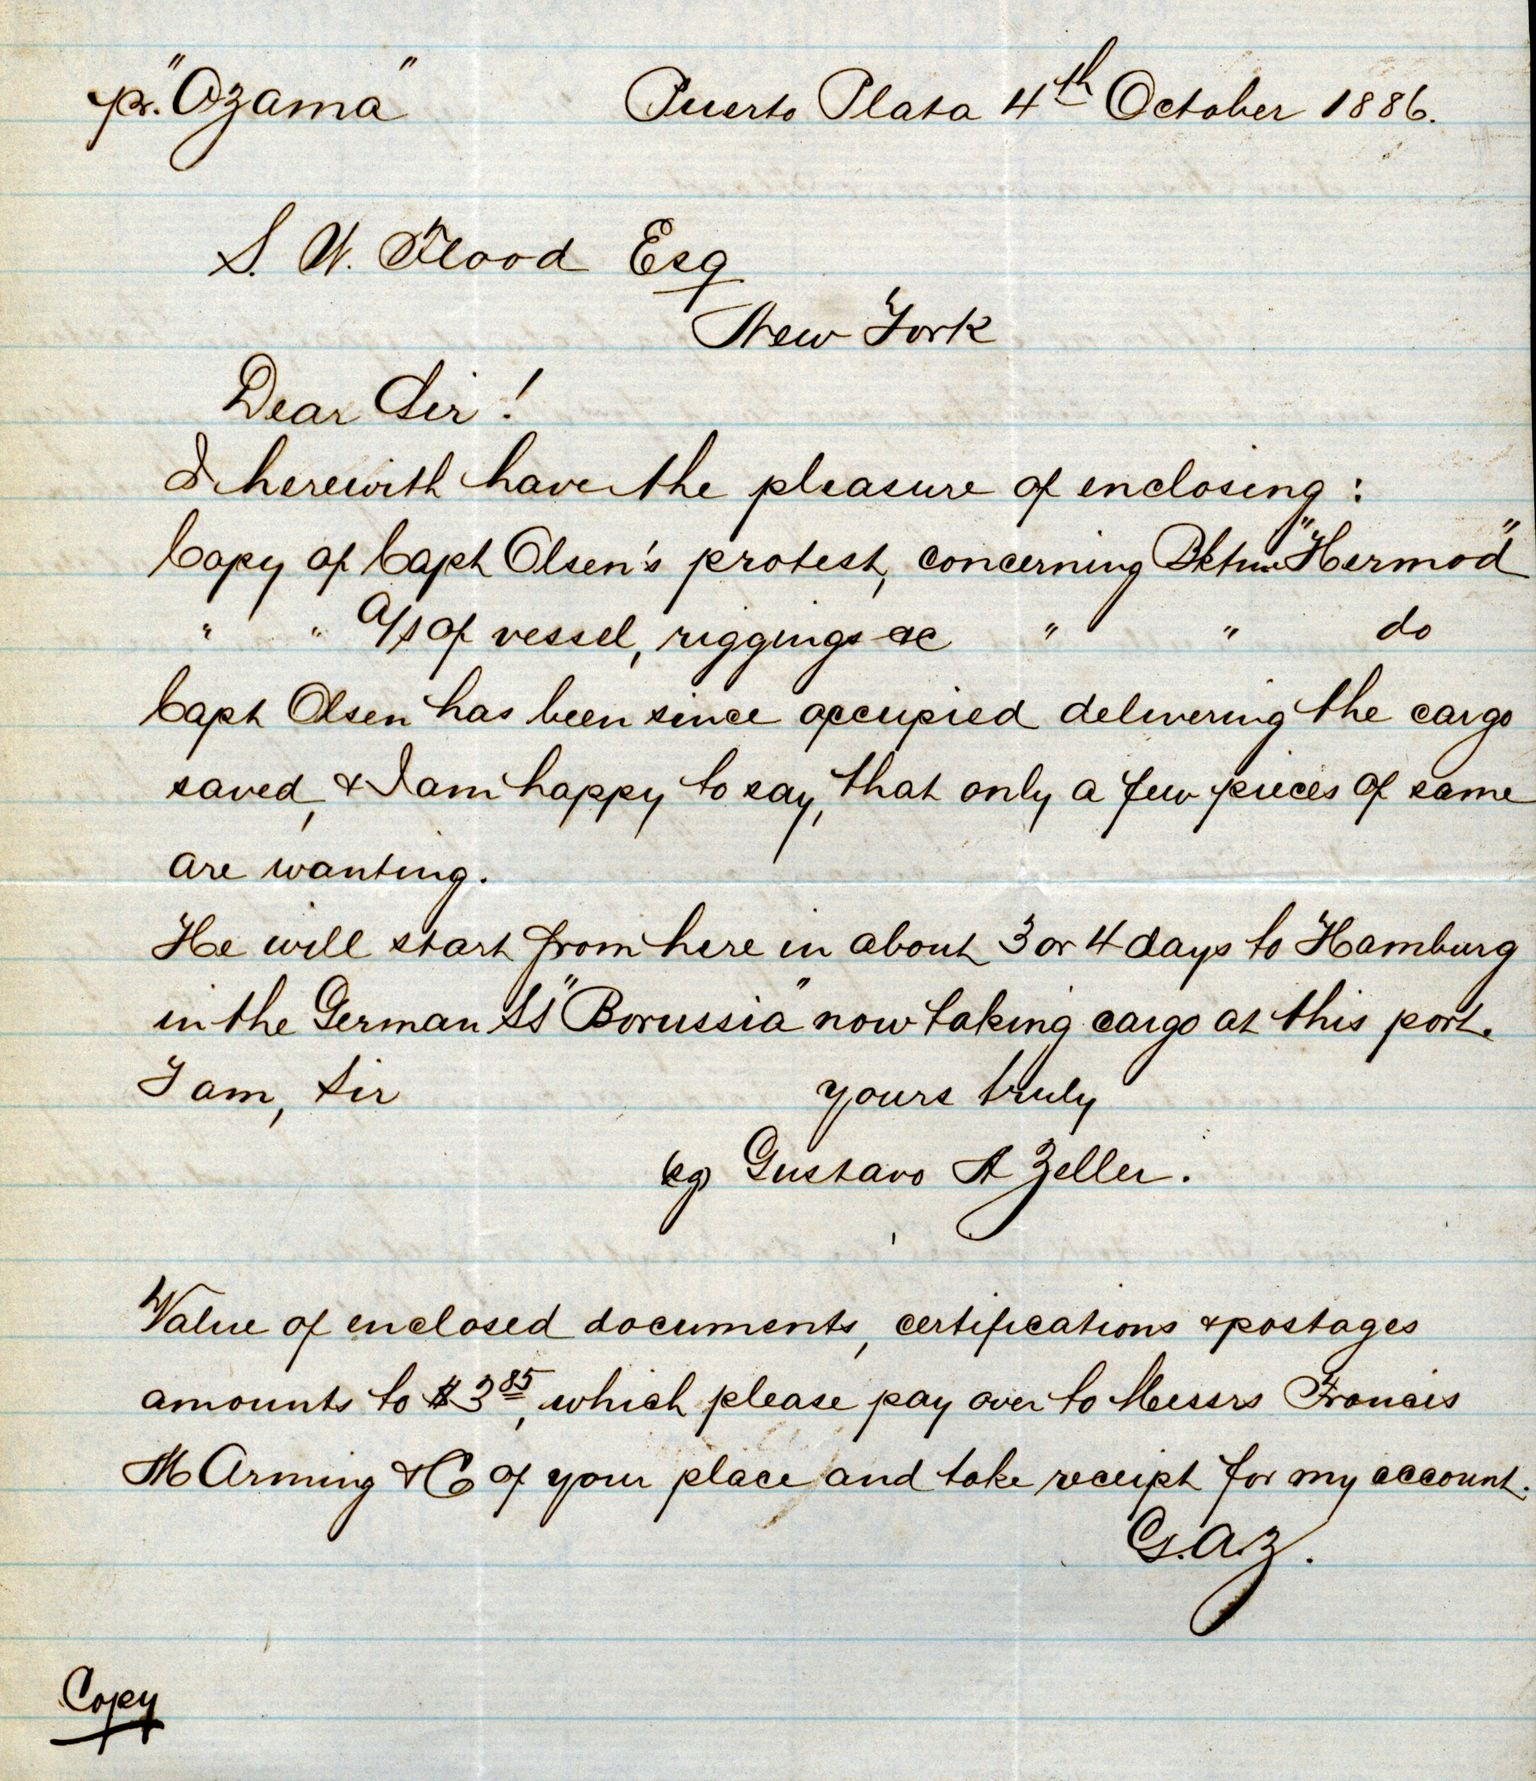 pr. "Ozama" Puerto Plata 4th October 1886.
S. W. Flood Esq
New York
Dear Sir!
I herewith have the pleasure of enclosing:
Copy of Capt Olsen's protest, concerning Bktne "Hermod"
" " A/S of vessel, riggings &c " " do
Capt Olsen has been since occupied delivering the cargo
saved, & I am happy to say, that only a few pieces of same
are wanting.
He will start from here in about 3 or 4 days to Hamburg
in the German SS "Borussia" now taking cargo at this port.
I am, Sir yours truly
Gustavo A Zeller.
Value of enclosed documents, certifications & postages
amounts to $3 85, which please pay over to Messrs Francis
M Arming & C of your place and take receipt for my account.
G.A.Z.
Copy